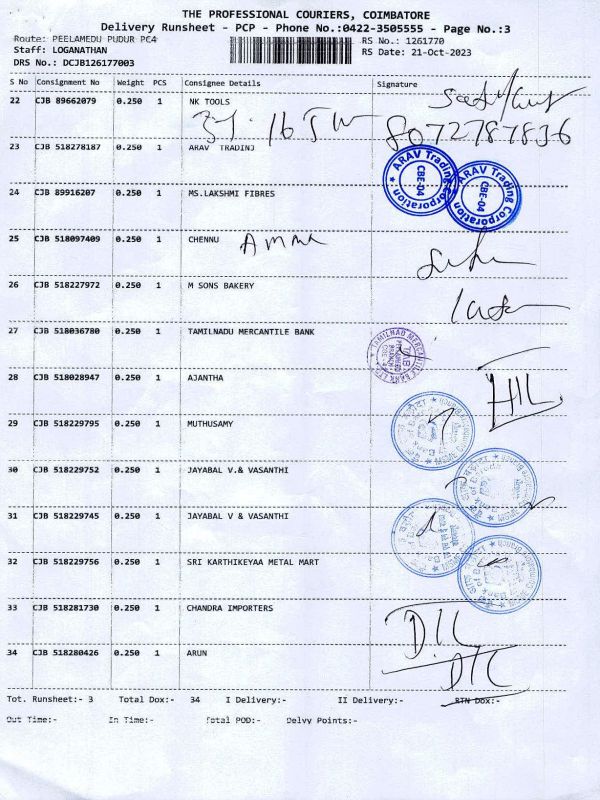 THE PROFESSIONAL COURIERS, COIMBATORE
Delivery Runsheet - PCP - Phone No.:0422-3505555 - Page No.:3
Route: PEELAMEDU PUDUR PC4 RS No.: 1261770
Staff: LOGANATHAN RS Date: 21-Oct-2023
DRS No.: DCJB126177003
S No Consignment No Weight PCS Consignee Details Signature
22 CJB 89662079 0.250 1 NK TOOLS
8072787836
23 CJB 518278187 0.250 1 ARAV TRADINJ
ARAV Trading Corporation CBE-04
ARAV Trading Corporation CBE-04
24 CJB 89916207 0.250 1 MS.LAKSHMI FIBRES
25 CJB 518097409 0.250 1 CHENNU Amma
26 CJB 518227972 0.250 1 M SONS BAKERY
27 CJB 518036780 0.250 1 TAMILNADU MERCANTILE BANK
TAMILNAD MERCANTILE BANK LTD
28 CJB 518028947 0.250 1 AJANTHA
29 CJB 518229795 0.250 1 MUTHUSAMY
30 CJB 518229752 0.250 1 JAYABAL V.& VASANTHI
31 CJB 518229745 0.250 1 JAYABAL V & VASANTHI
32 CJB 518229756 0.250 1 SRI KARTHIKEYAA METAL MART
33 CJB 518281730 0.250 1 CHANDRA IMPORTERS
34 CJB 518280426 0.250 1 ARUN
Tot. Runsheet:- 3 Total Dox:- 34 I Delivery:- II Delivery:- RTN Dox:-
Out Time:- In Time:- Total POD:- Delvy Points:-